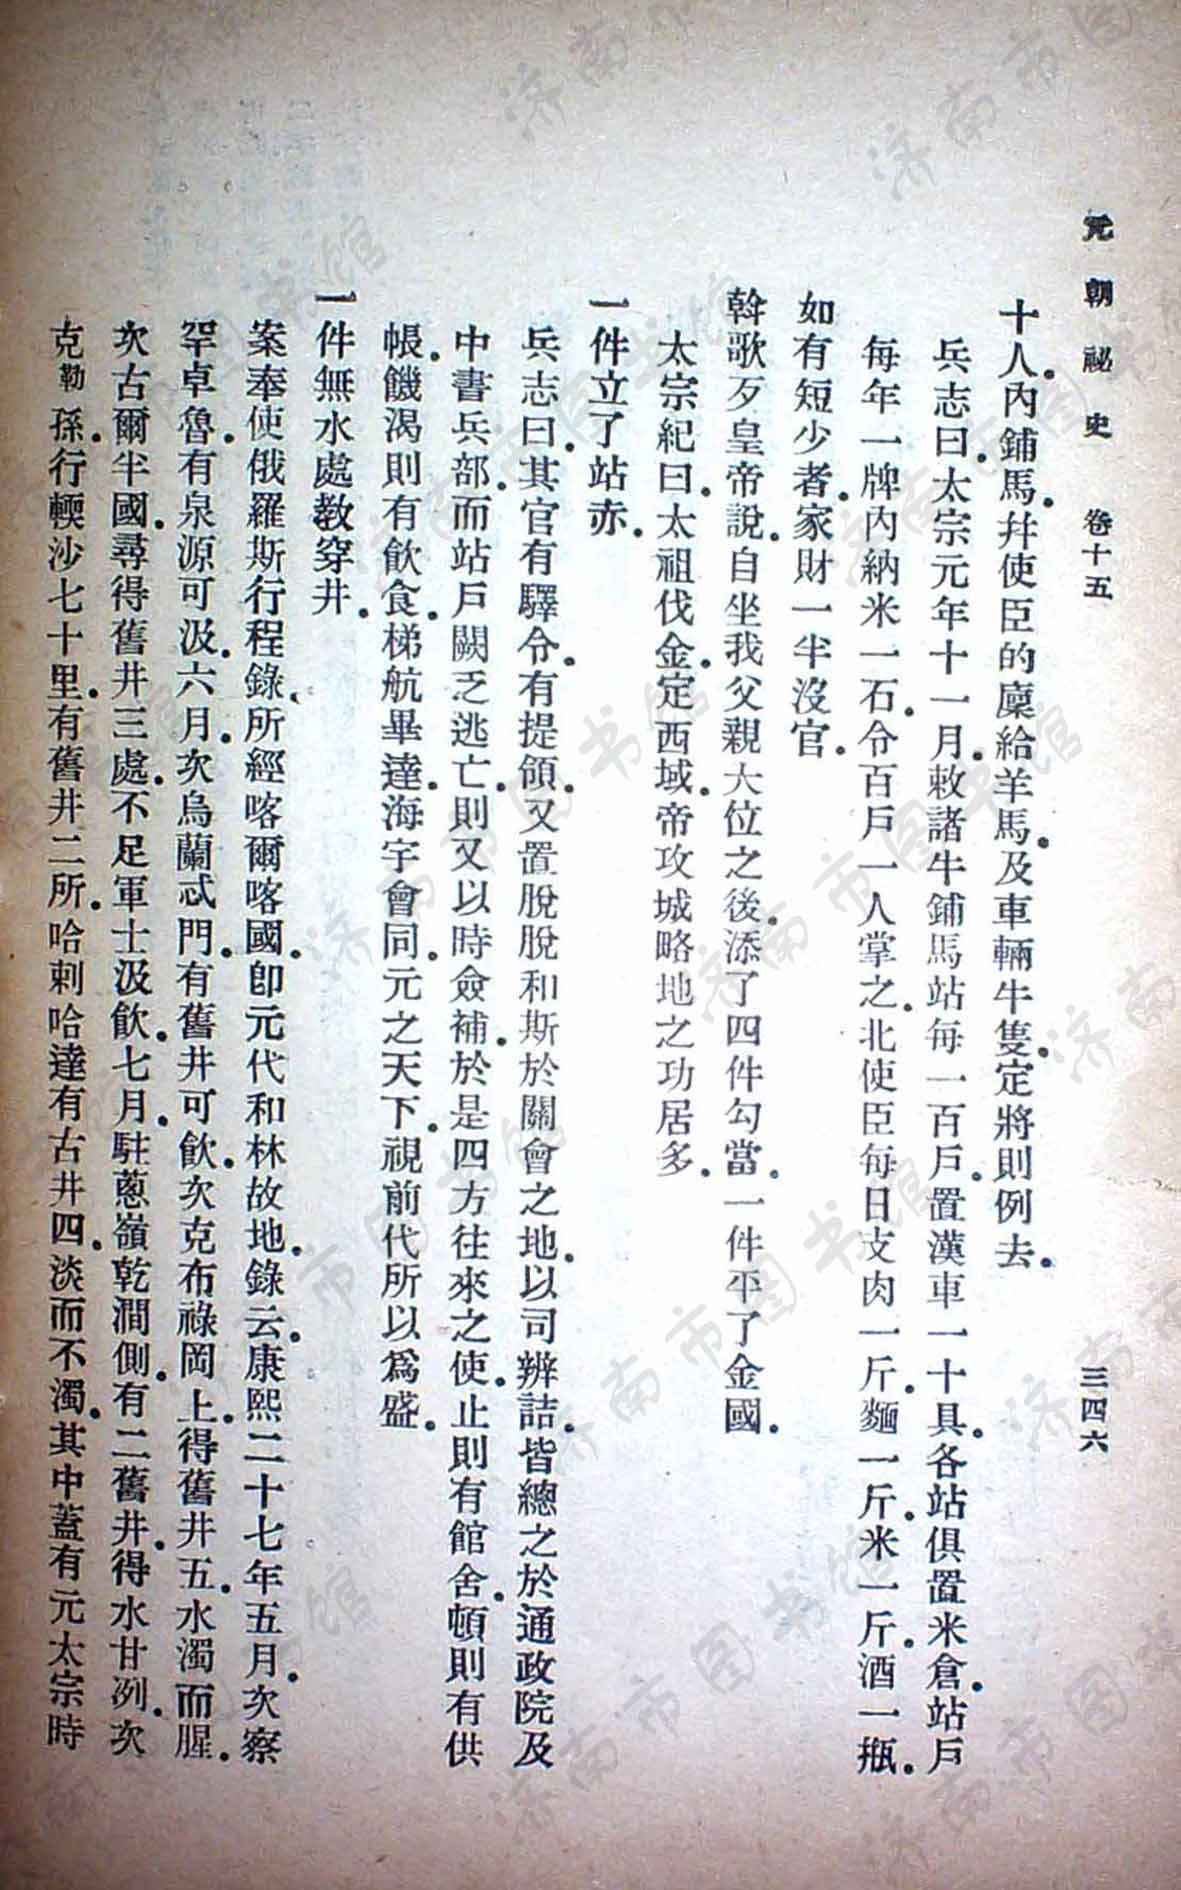 元朝祕史　卷十五　三四六
十人。內鋪馬。幷使臣的廩給羊馬。及車輛牛隻。定將則例去。
兵志曰。太宗元年十一月。敕諸牛鋪馬站每一百戶。置漢車一十具。各站俱置米倉。站戶
每年一牌內納米一石。令百戶一人掌之。北使臣每日支肉一斤。麵一斤。米一斤。酒一瓶。
如有短少者。家財一半沒官。
斡歌歹皇帝說。自坐我父親大位之後。添了四件勾當。一件平了金國。
太宗紀曰。太祖伐金。定西域。帝攻城略地之功居多。
一件立了站赤。
兵志曰。其官有驛令。有提領。又置脫脫和斯於關會之地。以司辨詰。皆總之於通政院及
中書兵部。而站戶闕乏逃亡。則又以時僉補。於是四方往來之使。止則有館舍。頓則有供
帳。饑渴則有飲食。梯航畢達。海宇會同。元之天下。視前代所以爲盛。
一件無水處教穿井。
案奉使俄羅斯行程錄。所經喀爾喀國。卽元代和林故地。錄云。康熙二十七年五月。次察
罕卓魯。有泉源可汲。六月。次烏蘭忒門。有舊井可飲。次克布祿岡上。得舊井五。水濁而腥。
次古爾半國。尋得舊井三處。不足軍士汲飲。七月。駐蔥嶺乾澗側。有二舊井。得水甘冽。次
克勒孫。行輭沙七十里。有舊井二所。哈剌哈達有古井四。淡而不濁。其中蓋有元太宗時
济南市图书馆